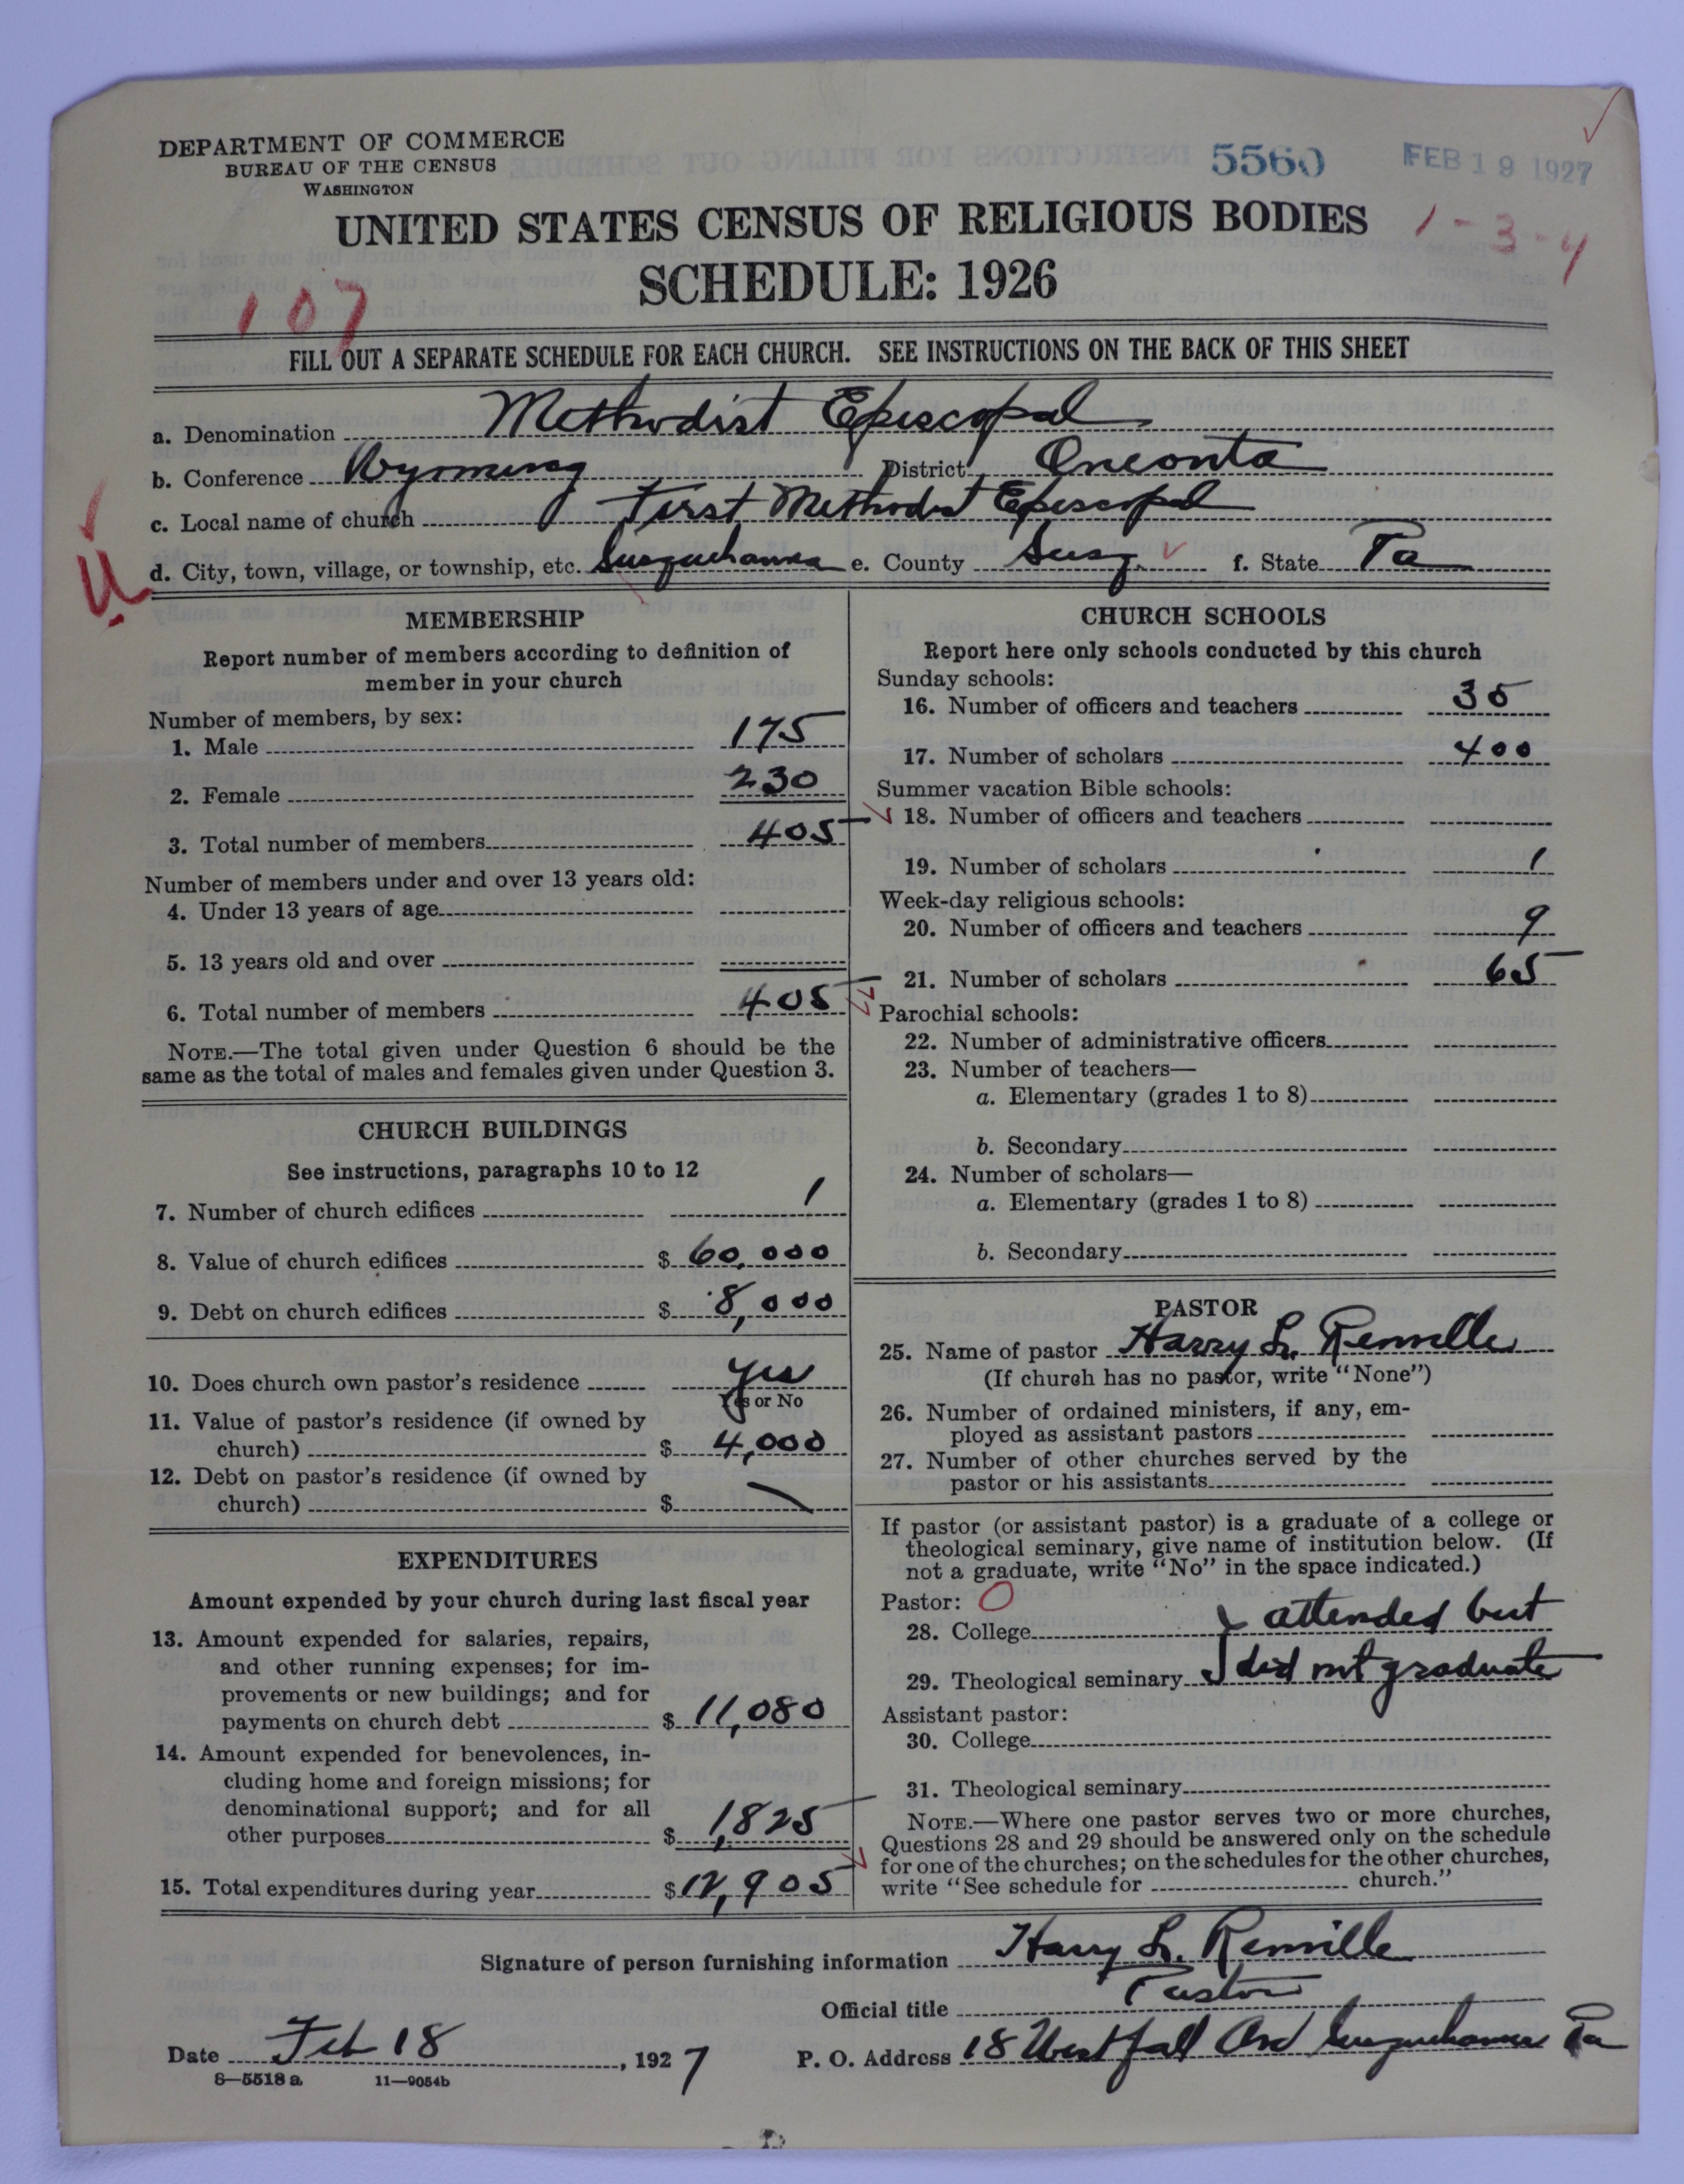 DEPARTMENT OF COMMERCE
BUREAU OF THE CENSUS
WASHINGTON
5560
FEB 19 1927
UNITED STATES CENSUS OF RELIGIOUS BODIES
1-3-4
SCHEDULE: 1926
107
FILL OUT A SEPARATE SCHEDULE FOR EACH CHURCH. SEE INSTRUCTIONS ON THE BACK OF THIS SHEET
a. Denomination Methodist Episcopal
b. Conference Wyoming District Oneonta
c. Local name of church First Methodist Episcopal
d. City, town, village, or township, etc. Susquehanna e. County Susq. f. State Pa
MEMBERSHIP
Report number of members according to definition of
member in your church
Number of members, by sex:
1. Male 175
2. Female 230
3. Total number of members 405
Number of members under and over 13 years old:
4. Under 13 years of age
5. 13 years old and over
6. Total number of members 405
NOTE.—The total given under Question 6 should be the
same as the total of males and females given under Question 3.
CHURCH BUILDINGS
See instructions, paragraphs 10 to 12
7. Number of church edifices 1
8. Value of church edifices $ 60,000
9. Debt on church edifices $ 8,000
10. Does church own pastor's residence Yes
Yes or No
11. Value of pastor's residence (if owned by
church) $ 4,000
12. Debt on pastor's residence (if owned by
church) $
EXPENDITURES
Amount expended by your church during last fiscal year
13. Amount expended for salaries, repairs,
and other running expenses; for im-
provements or new buildings; and for
payments on church debt $ 11,080
14. Amount expended for benevolences, in-
cluding home and foreign missions; for
denominational support; and for all
other purposes $ 1,825
15. Total expenditures during year $ 12,905
CHURCH SCHOOLS
Report here only schools conducted by this church
Sunday schools:
16. Number of officers and teachers 35
17. Number of scholars 400
Summer vacation Bible schools:
18. Number of officers and teachers
19. Number of scholars
Week-day religious schools:
20. Number of officers and teachers 9
21. Number of scholars 65
Parochial schools:
22. Number of administrative officers
23. Number of teachers—
a. Elementary (grades 1 to 8)
b. Secondary
24. Number of scholars—
a. Elementary (grades 1 to 8)
b. Secondary
PASTOR
25. Name of pastor Harry L. Renville
(If church has no pastor, write "None")
26. Number of ordained ministers, if any, em-
ployed as assistant pastors
27. Number of other churches served by the
pastor or his assistants
If pastor (or assistant pastor) is a graduate of a college or
theological seminary, give name of institution below. (If
not a graduate, write "No" in the space indicated.)
Pastor: O
28. College attended but
29. Theological seminary did not graduate
Assistant pastor:
30. College
31. Theological seminary
NOTE.—Where one pastor serves two or more churches,
Questions 28 and 29 should be answered only on the schedule
for one of the churches; on the schedules for the other churches,
write "See schedule for church."
Signature of person furnishing information Harry L. Renville
Official title Pastor
Date Feb 18, 1927 P. O. Address 18 Westfall Ave Susquehanna Pa
8—5518a 11—9054b